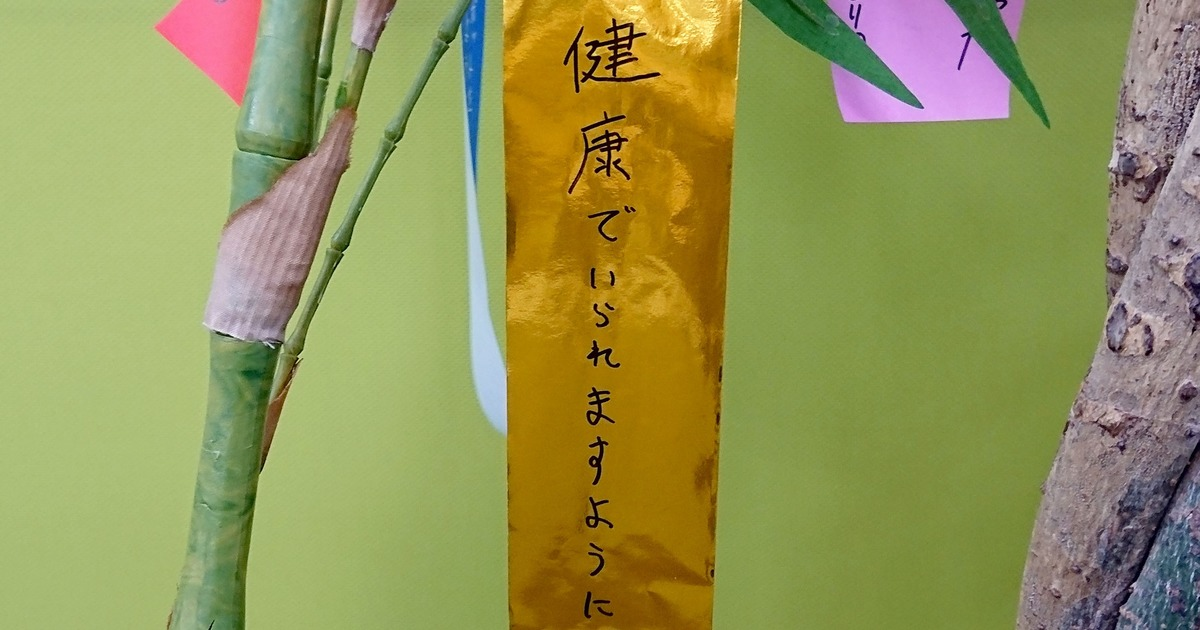 健康でいられますように